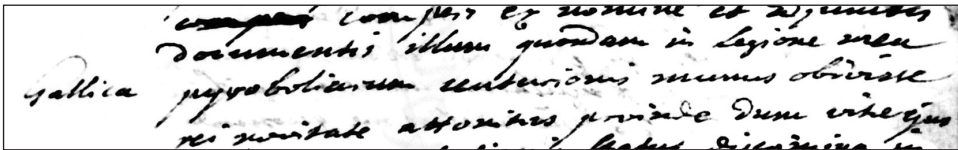 comperi ex nomine et adjunctis
documentis illum quondam in legione mea
Gallica pyroboliarum centurionis munus obiviste
rei novitate attonitus proinde dum vitæ ejus
discrimina in